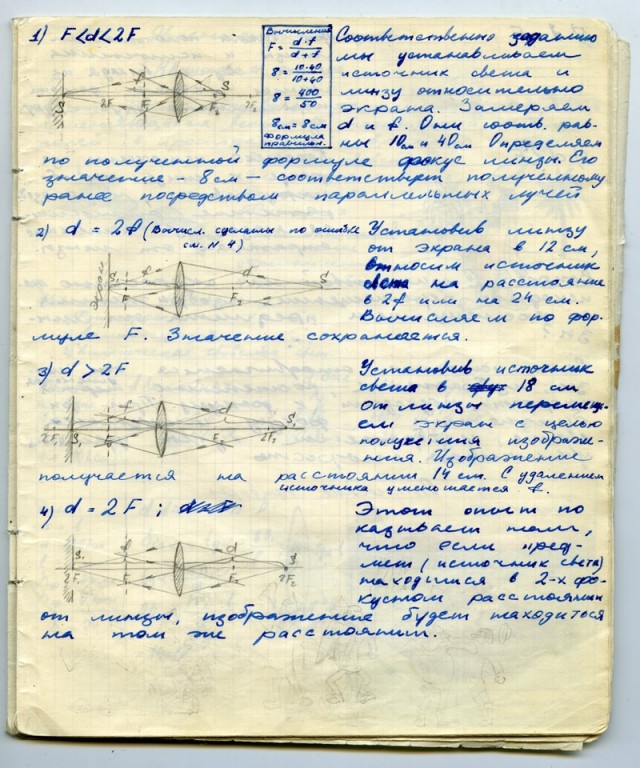 1) F<d<2F
Вычисления
F = d·f / d+f
8 = 10·40 / 10+40
8 = 400 / 50
8см = 8см
Формула
правильн.
Соответственно заданию
мы устанавливаем
источник света и
линзу относительно
экрана. Замеряем
d и f. Они соотв. рав-
ны 10см и 40см Определяем
по полученной формуле фокус линзы. Его
значение - 8см - соответствует полученному
ранее посредством параллельных лучей
S1 2F F d S F2 2F2
2) d = 2f (Вычисл. сделаны по ошибке
см. N 4)
Установив линзу
от экрана в 12 см,
относим источник
света на расстояние
в 2f или на 24 см.
Вычисляем по фор-
муле F. Значение сохраняется.
Экран S1 f F d F2 S
3) d > 2F
Установив источник
света в 18 см
от линзы перемещ-
ем экран с целью
получения изображе-
ния. Изображение
получается на расстоянии 14 см. С удалением
источника уменьшается f.
2F1 S1 F1 f d F2 2F2 S
4) d = 2F ;
Этот опыт по
казывает нам,
что если пред-
мет (источник света)
находится в 2-х фо-
кусном расстоянии
от линзы, изображение будет находиться
на том же расстоянии.
S1 2F1 F1 f d F2 S 2F2